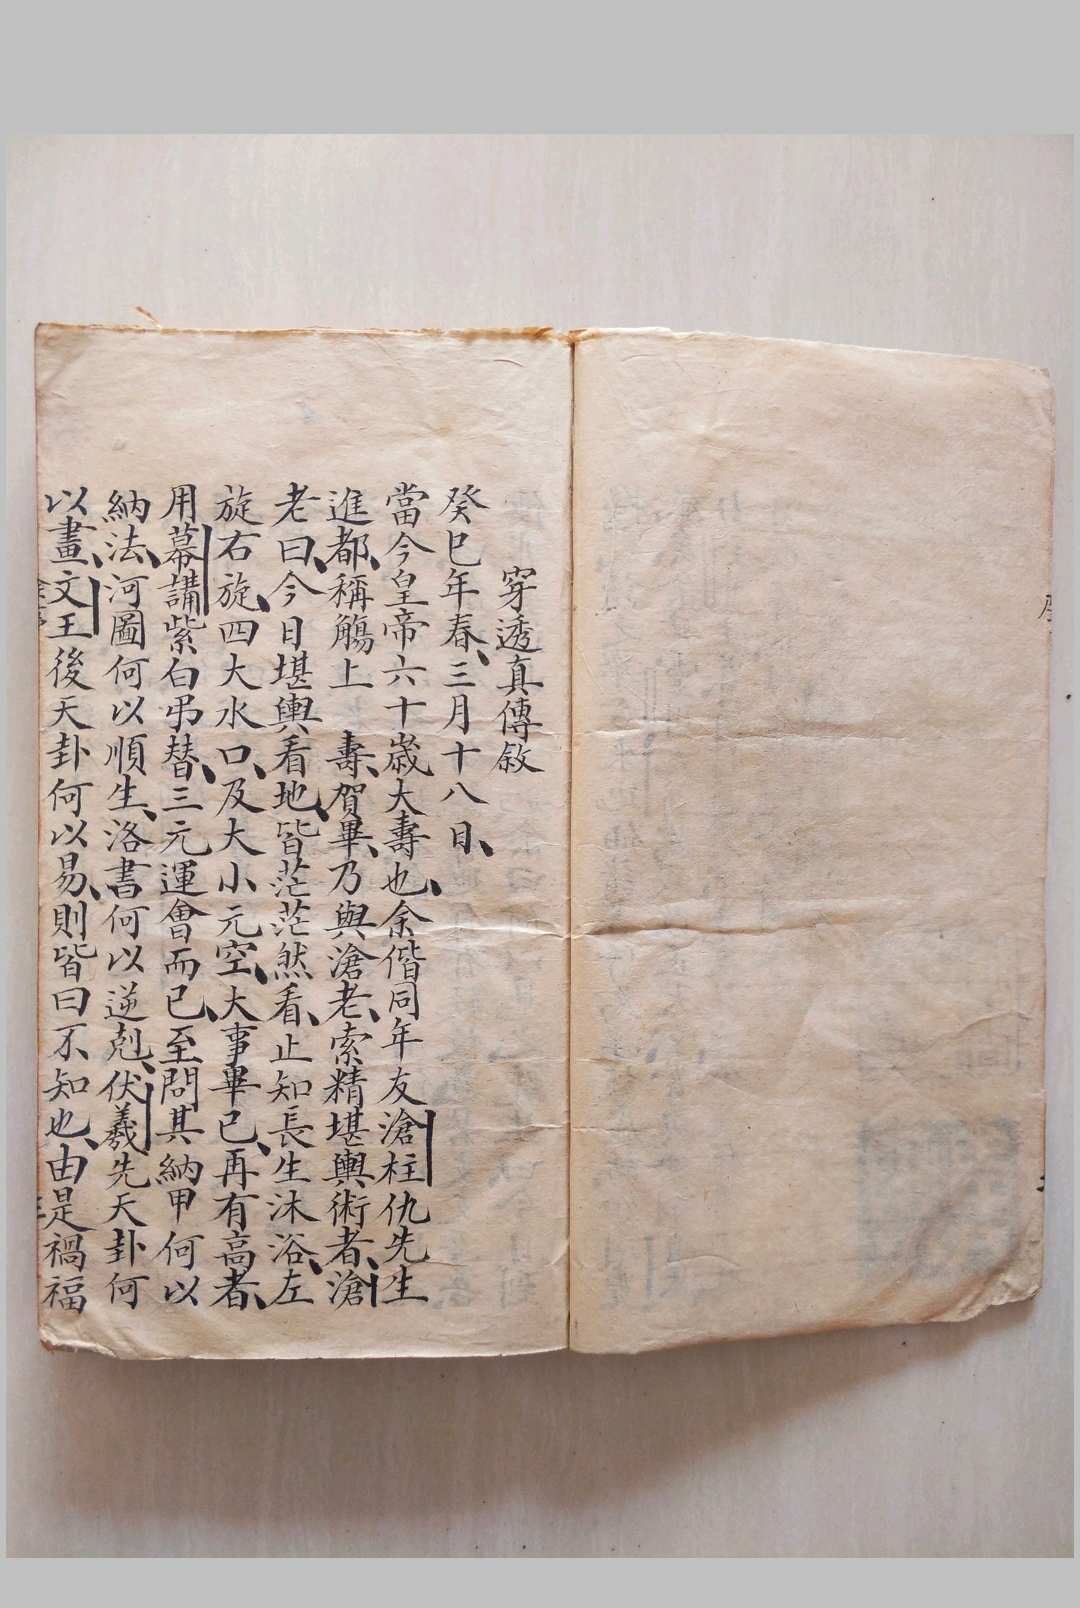 穿透真傳敘
癸巳年春、三月十八日、
當今皇帝六十歲大壽也、余偕同年友滄柱仇先生
進都、稱觴上 壽、賀畢、乃與滄老、索精堪輿術者、滄
老曰、今日堪輿看地、皆茫茫然看、止知長生沐浴、左
旋右旋、四大水口、及大小元空、大事畢已、再有高者、
用幕講紫白弔替、三元運會而已、至問其納甲何以
納法、河圖何以順生、洛書何以逆剋、伏羲先天卦何
以畫、文王後天卦何以易、則皆曰不知也、由是禍福